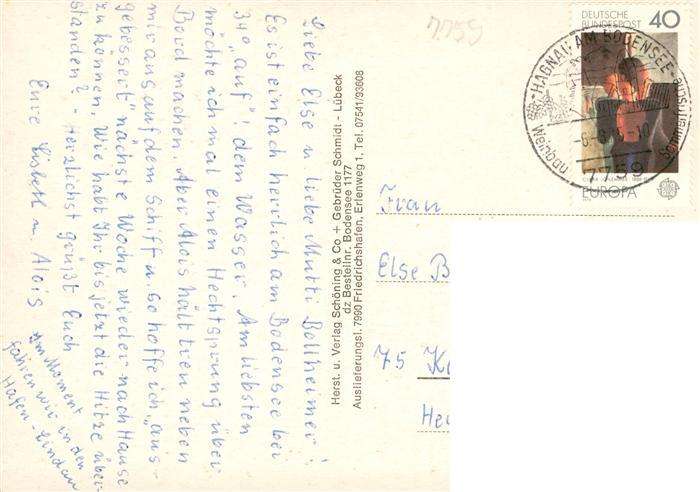 Liebe Else u. liebe Mutti Bollheimer!
Es ist einfach herrlich am Bodensee bei
34° "auf"! dem Wasser. Am liebsten
möchte ich mal einen Hechtsprung über
Bord machen. Aber Alois hält treu neben
mir aus auf dem Schiff u. so hoffe ich, "aus-
gebessert" nächste Woche wieder nach Hause
zu können. Wie habt Ihr bis jetzt die Hitze über-
standen? - Herzlichst grüßt Euch
Eure Lisbeth u. Alois
Am Moment
fahren wir in den
Hafen - Lindau
Herst. u. Verlag Schöning & Co + Gebrüder Schmidt - Lübeck
dz Bestellnr. Bodensee 1177
Auslieferungsl. 7990 Friedrichshafen, Erlenweg 1, Tel. 07541/93608
7759
DEUTSCHE
BUNDESPOST
40
EUROPA
HAGNAU AM BODENSEE
7759
Frau
Else B
75 K
He